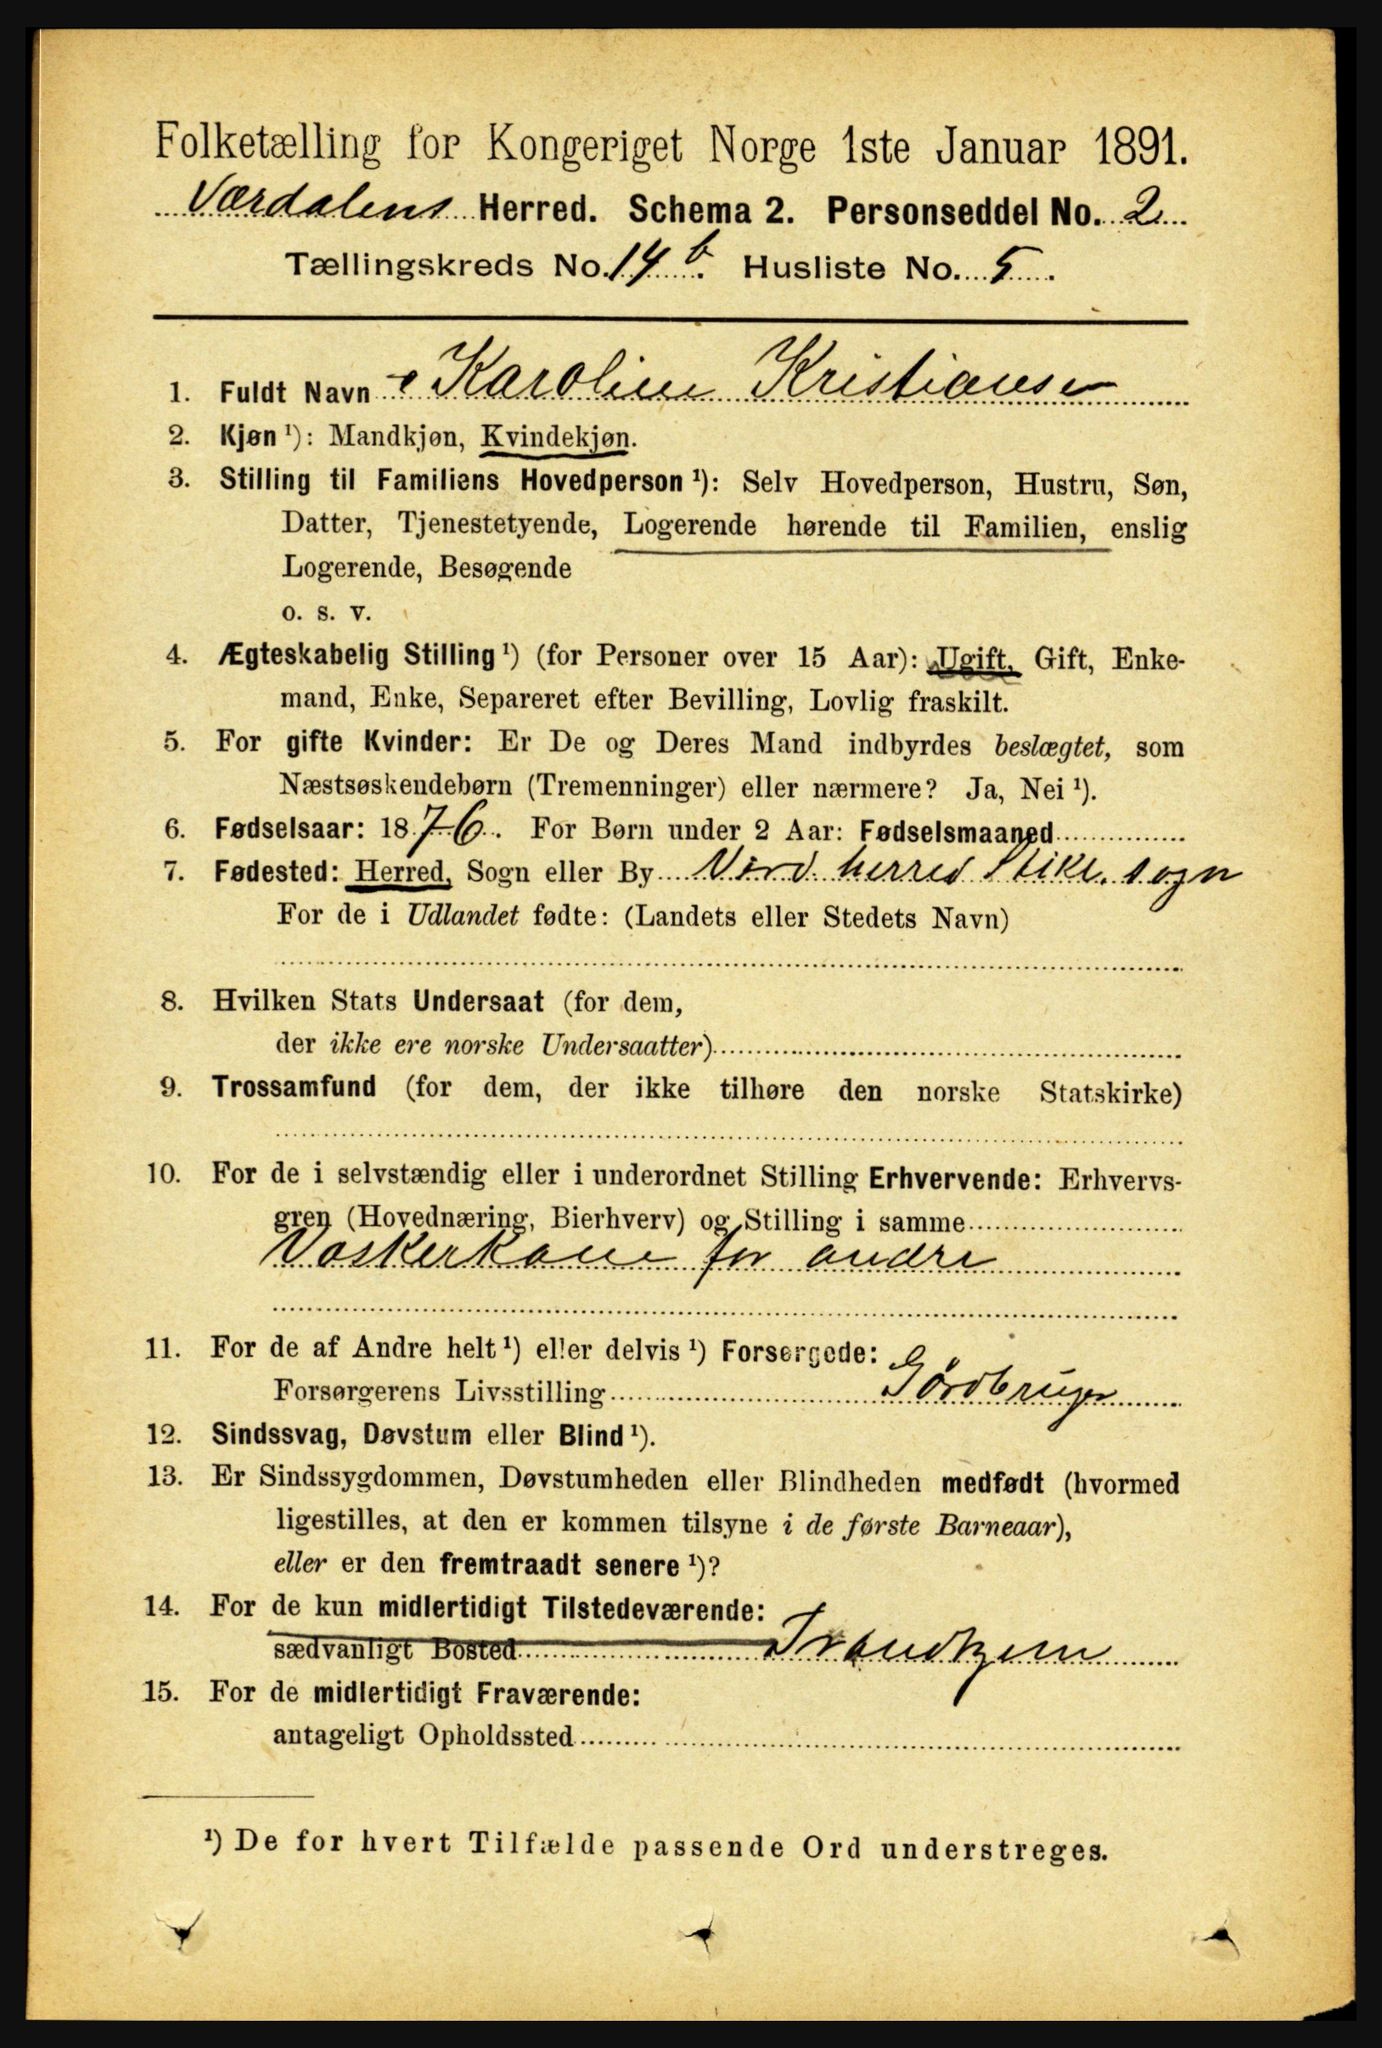 Folketælling for Kongeriget Norge 1ste Januar 1891.
Værdalens Herred. Schema 2. Personseddel No. 2
Tællingskreds No. 14 b. Husliste No. 5.
1. Fuldt Navn Karoline Kristiansen
2. Kjøn ¹): Mandkjøn, Kvindekjøn.
3. Stilling til Familiens Hovedperson ¹): Selv Hovedperson, Hustru, Søn,
Datter, Tjenestetyende, Logerende hørende til Familien, enslig
Logerende, Besøgende
o. s. v.
4. Ægteskabelig Stilling ¹) (for Personer over 15 Aar): Ugift, Gift, Enke-
mand, Enke, Separeret efter Bevilling, Lovlig fraskilt.
5. For gifte Kvinder: Er De og Deres Mand indbyrdes beslægtet, som
Næstsøskendebørn (Tremenninger) eller nærmere? Ja, Nei ¹).
6. Fødselsaar: 1876. For Børn under 2 Aar: Fødselsmaaned
7. Fødested: Herred, Sogn eller By herred Stikl. sogn
For de i Udlandet fødte: (Landets eller Stedets Navn)
8. Hvilken Stats Undersaat (for dem,
der ikke ere norske Undersaatter)
9. Trossamfund (for dem, der ikke tilhøre den norske Statskirke)
10. For de i selvstændig eller i underordnet Stilling Erhvervende: Erhvervs-
gren (Hovednæring, Bierhverv) og Stilling i samme
Vaskerkone for andre
11. For de af Andre helt ¹) eller delvis ¹) Forsørgede:
Forsørgerens Livsstilling Gårdbruger
12. Sindssvag, Døvstum eller Blind ¹).
13. Er Sindssygdommen, Døvstumheden eller Blindheden medfødt (hvormed
ligestilles, at den er kommen tilsyne i de første Barneaar),
eller er den fremtraadt senere ¹)?
14. For de kun midlertidigt Tilstedeværende:
sædvanligt Bosted Trondhjem
15. For de midlertidigt Fraværende:
antageligt Opholdssted
¹) De for hvert Tilfælde passende Ord understreges.